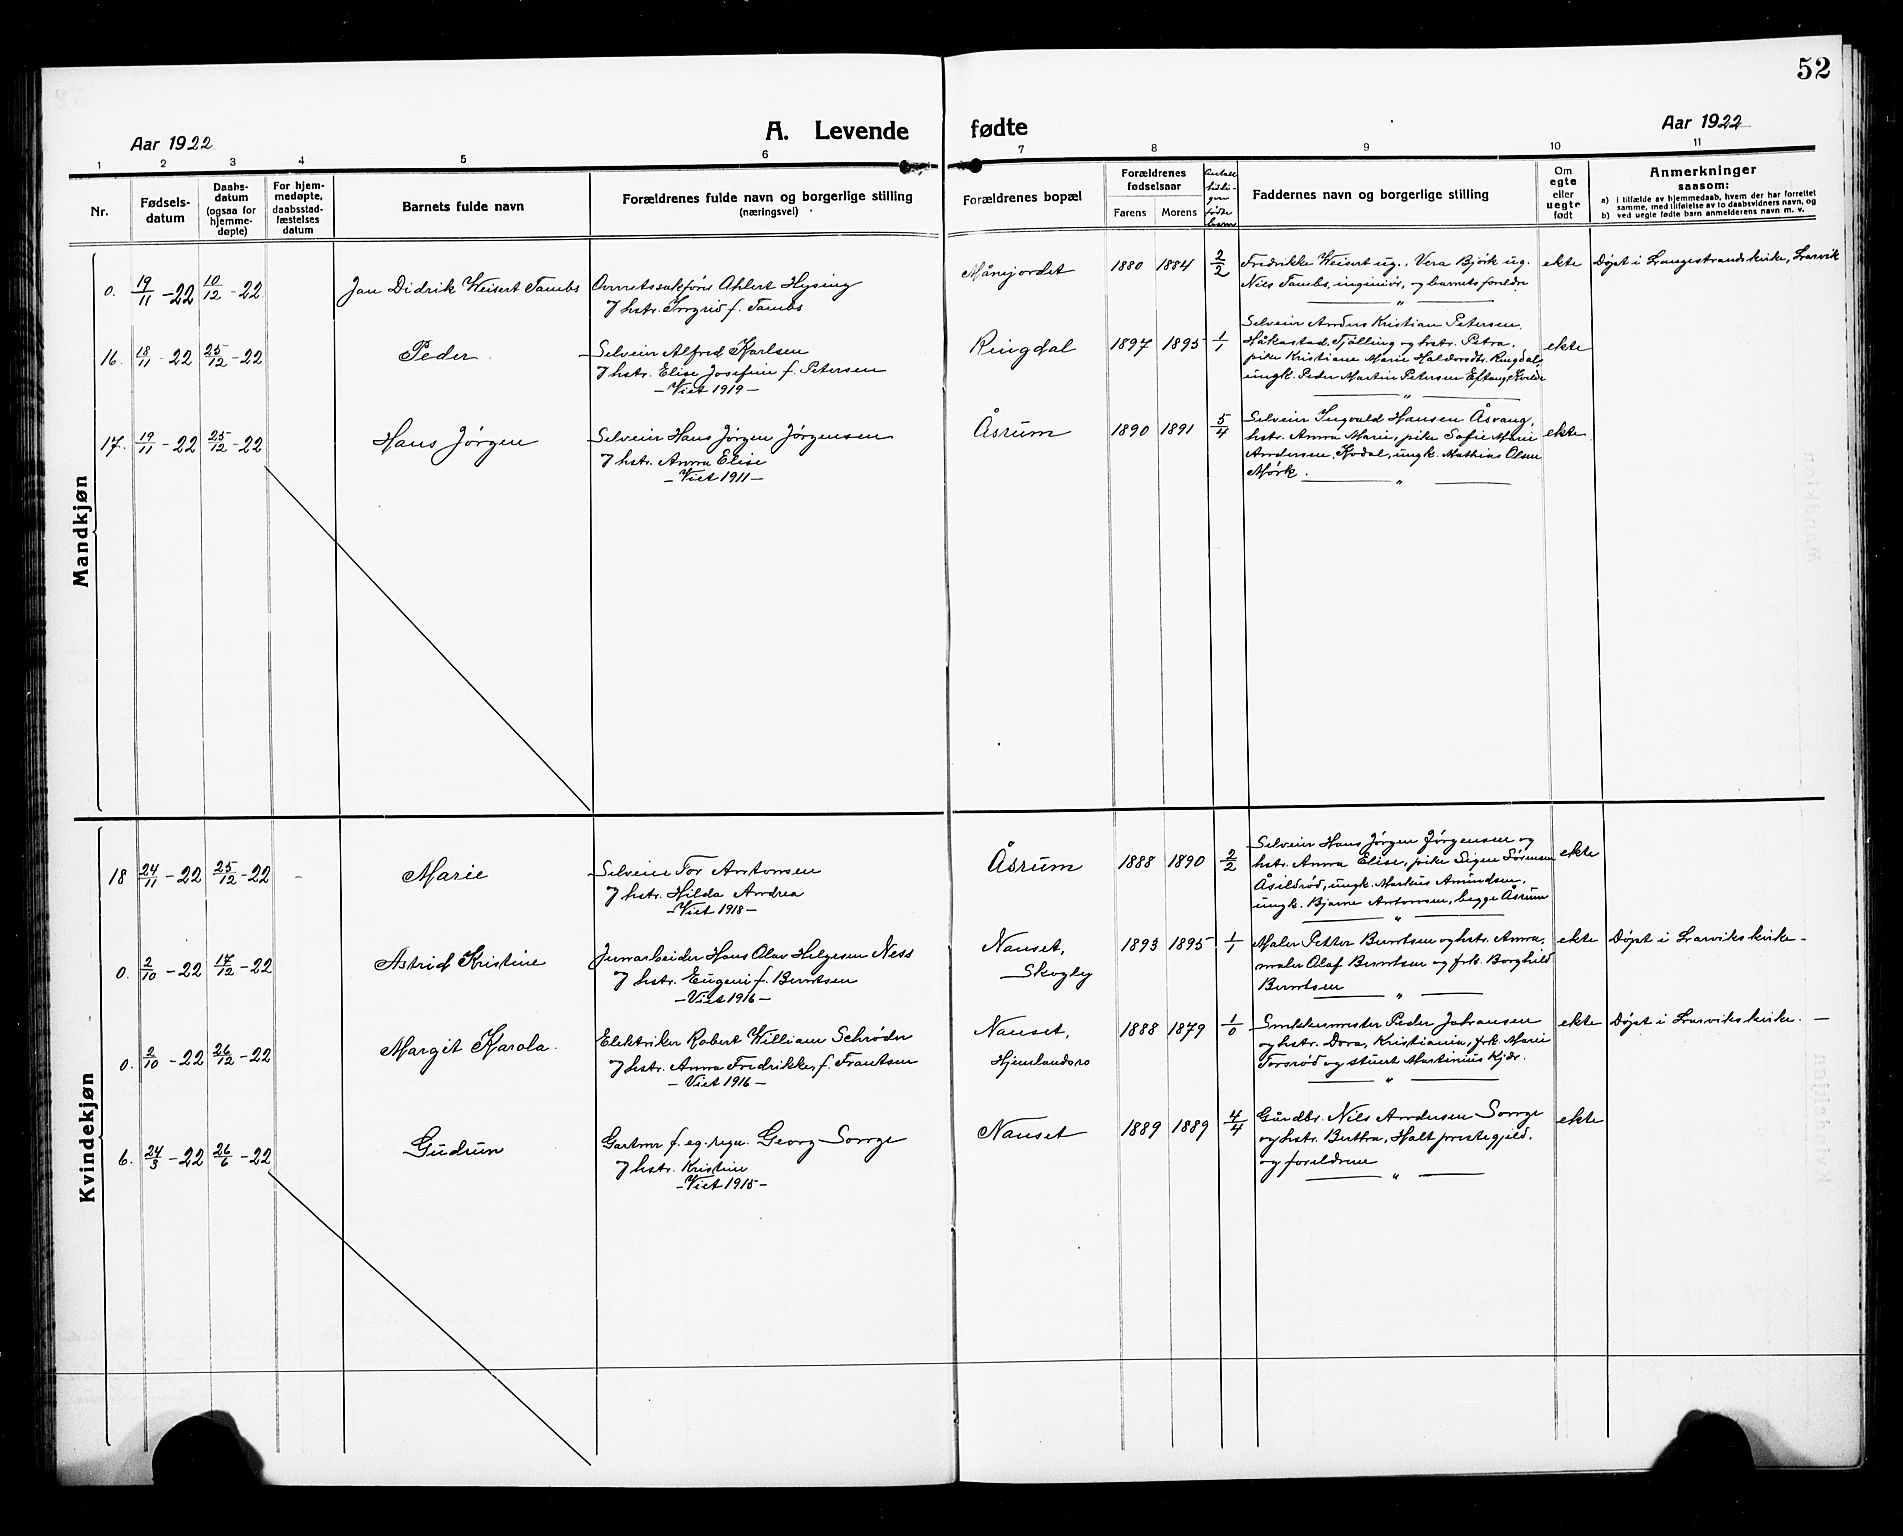 52
Aar 1922
A. Levende fødte
Aar 1922
1 2 3 4 5 6 7 8 9 10 11
Nr.
Fødsels-
datum
Daabs-
datum
(ogsaa for
hjemme-
døpte)
For hjem-
medøpte,
daabsstad-
fæstelses
datum
Barnets fulde navn
Forældrenes fulde navn og borgerlige stilling
(næringsvei)
Forældrenes bopæl
Forældrenes
fødselsaar
Farens Morens
Antall
tidli-
gere
fødte
barn
Faddernes navn og borgerlige stilling
Om
egte
eller
uegte
født
Anmerkninger
saasom:
a) i tilfælde av hjemmedaab, hvem der har forrettet
samme, med tilføielse av to daabsvidners navn, og
b) ved uegte fødte barn anmelderens navn m. v.
Mandkjøn
0. 19/11-22 10/12-22
Jan Didrik Weisert Tambs
Overretssakfører Ahlert Hysing
og hstr. Ingrid f. Tambs
Månejordet
1880 1884 2/2
Fredrikke Weisert ug., Vera Bjørk ug.
Nils Tambs, ingeniør, og barnets foreldre
ekte
Døpt i Langestrands kirke, Larvik
16. 18/11-22 25/12-22
Peder
Selveier Alfred Karlsen
og hstr. Elise Josefine f. Petersen
- Viet 1919 -
Ringdal
1897 1895 1/1
Selveier Anders Kristian Petersen,
Håkastad, Tjølling og hstr. Petra,
pike Kristiane Marie Haldorsdtr. Ringdal,
ungk. Peder Martin Petersen Eftang, Kvelde
ekte
17. 19/11-22 25/12-22
Hans Jørgen
Selveier Hans Jørgen Jørgensen
og hstr. Anna Elise
- Viet 1911 -
Åsrum
1890 1891 5/4
Selveier Ingvald Hansen Åsvang,
hstr. Anna Marie, pike Sofie Marie
Andersen, Kodal, ungk. Mathias Olsen
Mørk.
ekte
Kvindekjøn
18 24/11-22 25/12-22 -
Marie
Selveier Tor Antonsen
og hstr. Hilda Andrea
- Viet 1918 -
Åsrum
1888 1890 2/2
Selveier Hans Jørgen Jørgensen og
hstr. Anna Elise, pike Signe Sørensen
Åsildrød, ungk. Markus Amundsen,
ungk. Bjarne Antonsen, begge Åsrum
ekte
0. 2/10-22 17/12-22
Astrid Kristine
Jernarbeider Hans Olav Helgesen Ness
og hstr. Eugeni f. Berntsen
- Viet 1916 -
Nanset,
Skogly
1893 1895 1/1
Maler Petter Berntsen og hstr. Anna,
maler Olaf Berntsen og frk. Borghild
Berntsen
ekte
Døpt i Larviks kirke -
0. 2/10-22 26/12-22
Margit Karola.
Elektriker Robert William Schrøder
og hstr. Anna Fredrikke, f. Frantsen
- Viet 1916 -
Nanset,
Hjemlandsro
1888 1879 1/0
Snekkermester Peder Johansen
og hstr. Dora, Kristiania, frk. Marie
Torsrød og stuert Martinius Kjær.
ekte
Døpt i Larviks kirke. -
6. 24/3-22 26/6-22
Gudrun
Gartner f. eg. regn. Georg Sorge
og hstr. Kristine
- Viet 1915 -
Nanset
1889 1889 4/4
Gårdbr. Nils Andersen Sorge
og hstr. Bertha, Holt prestegjeld,
og foreldrene
ekte